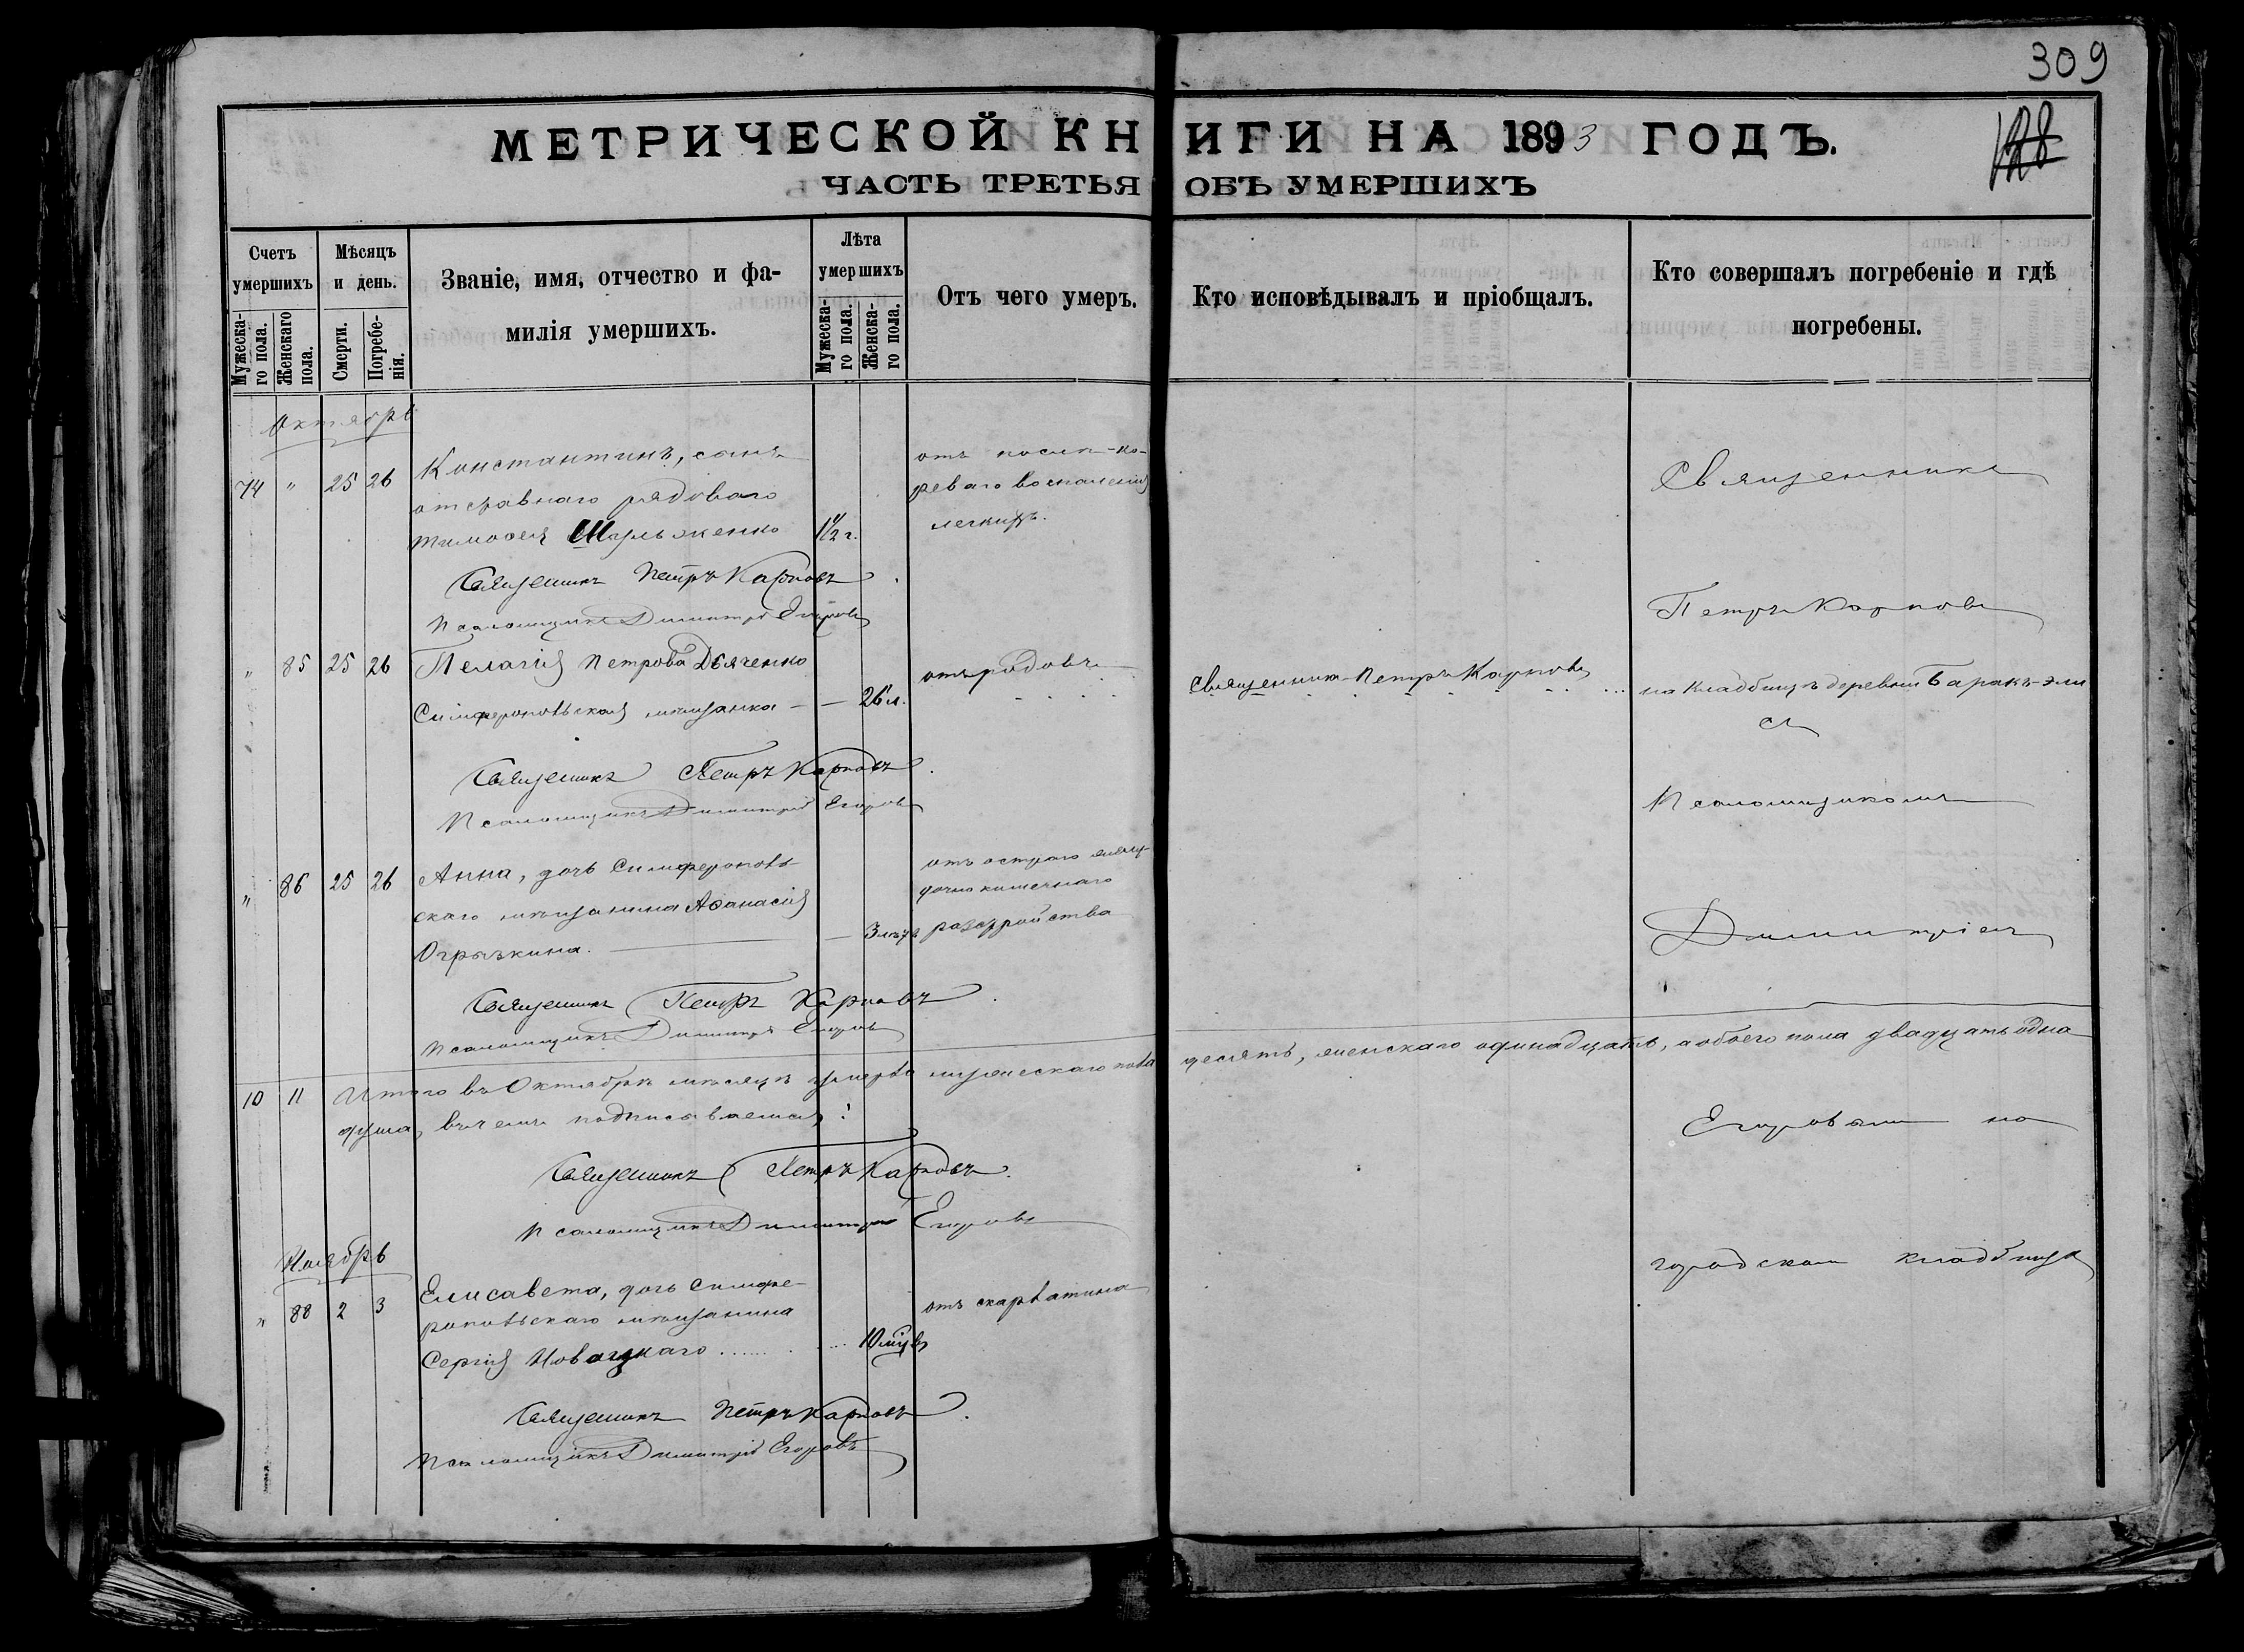 309
МЕТРИЧЕСКОЙ КНИГИ НА 1893 ГОДЪ.
128
ЧАСТЬ ТРЕТЬЯ ОБЪ УМЕРШИХЪ
Счетъ умершихъ
Мужеска-го пола.
Женскаго пола.
Мѣсяцъ и день.
Смерти.
Погребе-нія.
Званіе, имя, отчество и фа-
милія умершихъ.
Лѣта умершихъ
Мужеска-го пола.
Женска-го пола.
Отъ чего умеръ.
Кто исповѣдывалъ и пріобщалъ.
Кто совершалъ погребеніе и гдѣ
погребены.
Октябрь
74 " 25 26 Константинъ, сынъ
отставнаго рядоваго
Тимоѳея 1 1/2 г.
отъ послѣ-ко-
реваго воспаленія
легкихъ.
Священникъ
Священникъ Петръ Карповъ
Псаломщикъ Димитрій Егоровъ
Петръ Карповъ
" 85 25 26 Пелагія Петрова Дьяченко
Симферопольская мѣщанка — — 26 л.
отъ родовъ
Священникъ Петръ Карповъ
на кладбищѣ деревни Баракъ-эли
съ
Священникъ Петръ Карповъ
Псаломщикъ Димитрій Егоровъ
Псаломщикомъ
" 86 25 26 Анна, дочь Симферополь-
скаго мѣщанина Аѳанасія
Огрызкина. — 3 лѣтъ
отъ остраго желу-
дочно кишечнаго
разстройства
Димитріемъ
Священникъ Петръ Карповъ
Псаломщикъ Димитрій Егоровъ
10 11 Итого въ Октябрѣ мѣсяцѣ умерло мужескаго пола десять, женскаго одинадцать, а обоего пола двадцать одна
душа, въ чемъ подписываемся:
Егоровымъ на
Священникъ Петръ Карповъ.
Псаломщикъ Димитрій Егоровъ
Ноябрь
городскомъ кладбищѣ
" 88 2 3 Елисавета, дочь Симфе-
ропольскаго мѣщанина
Сергія 10 мѣц.
отъ скарлатины
Священникъ Петръ Карповъ.
Псаломщикъ Димитрій Егоровъ